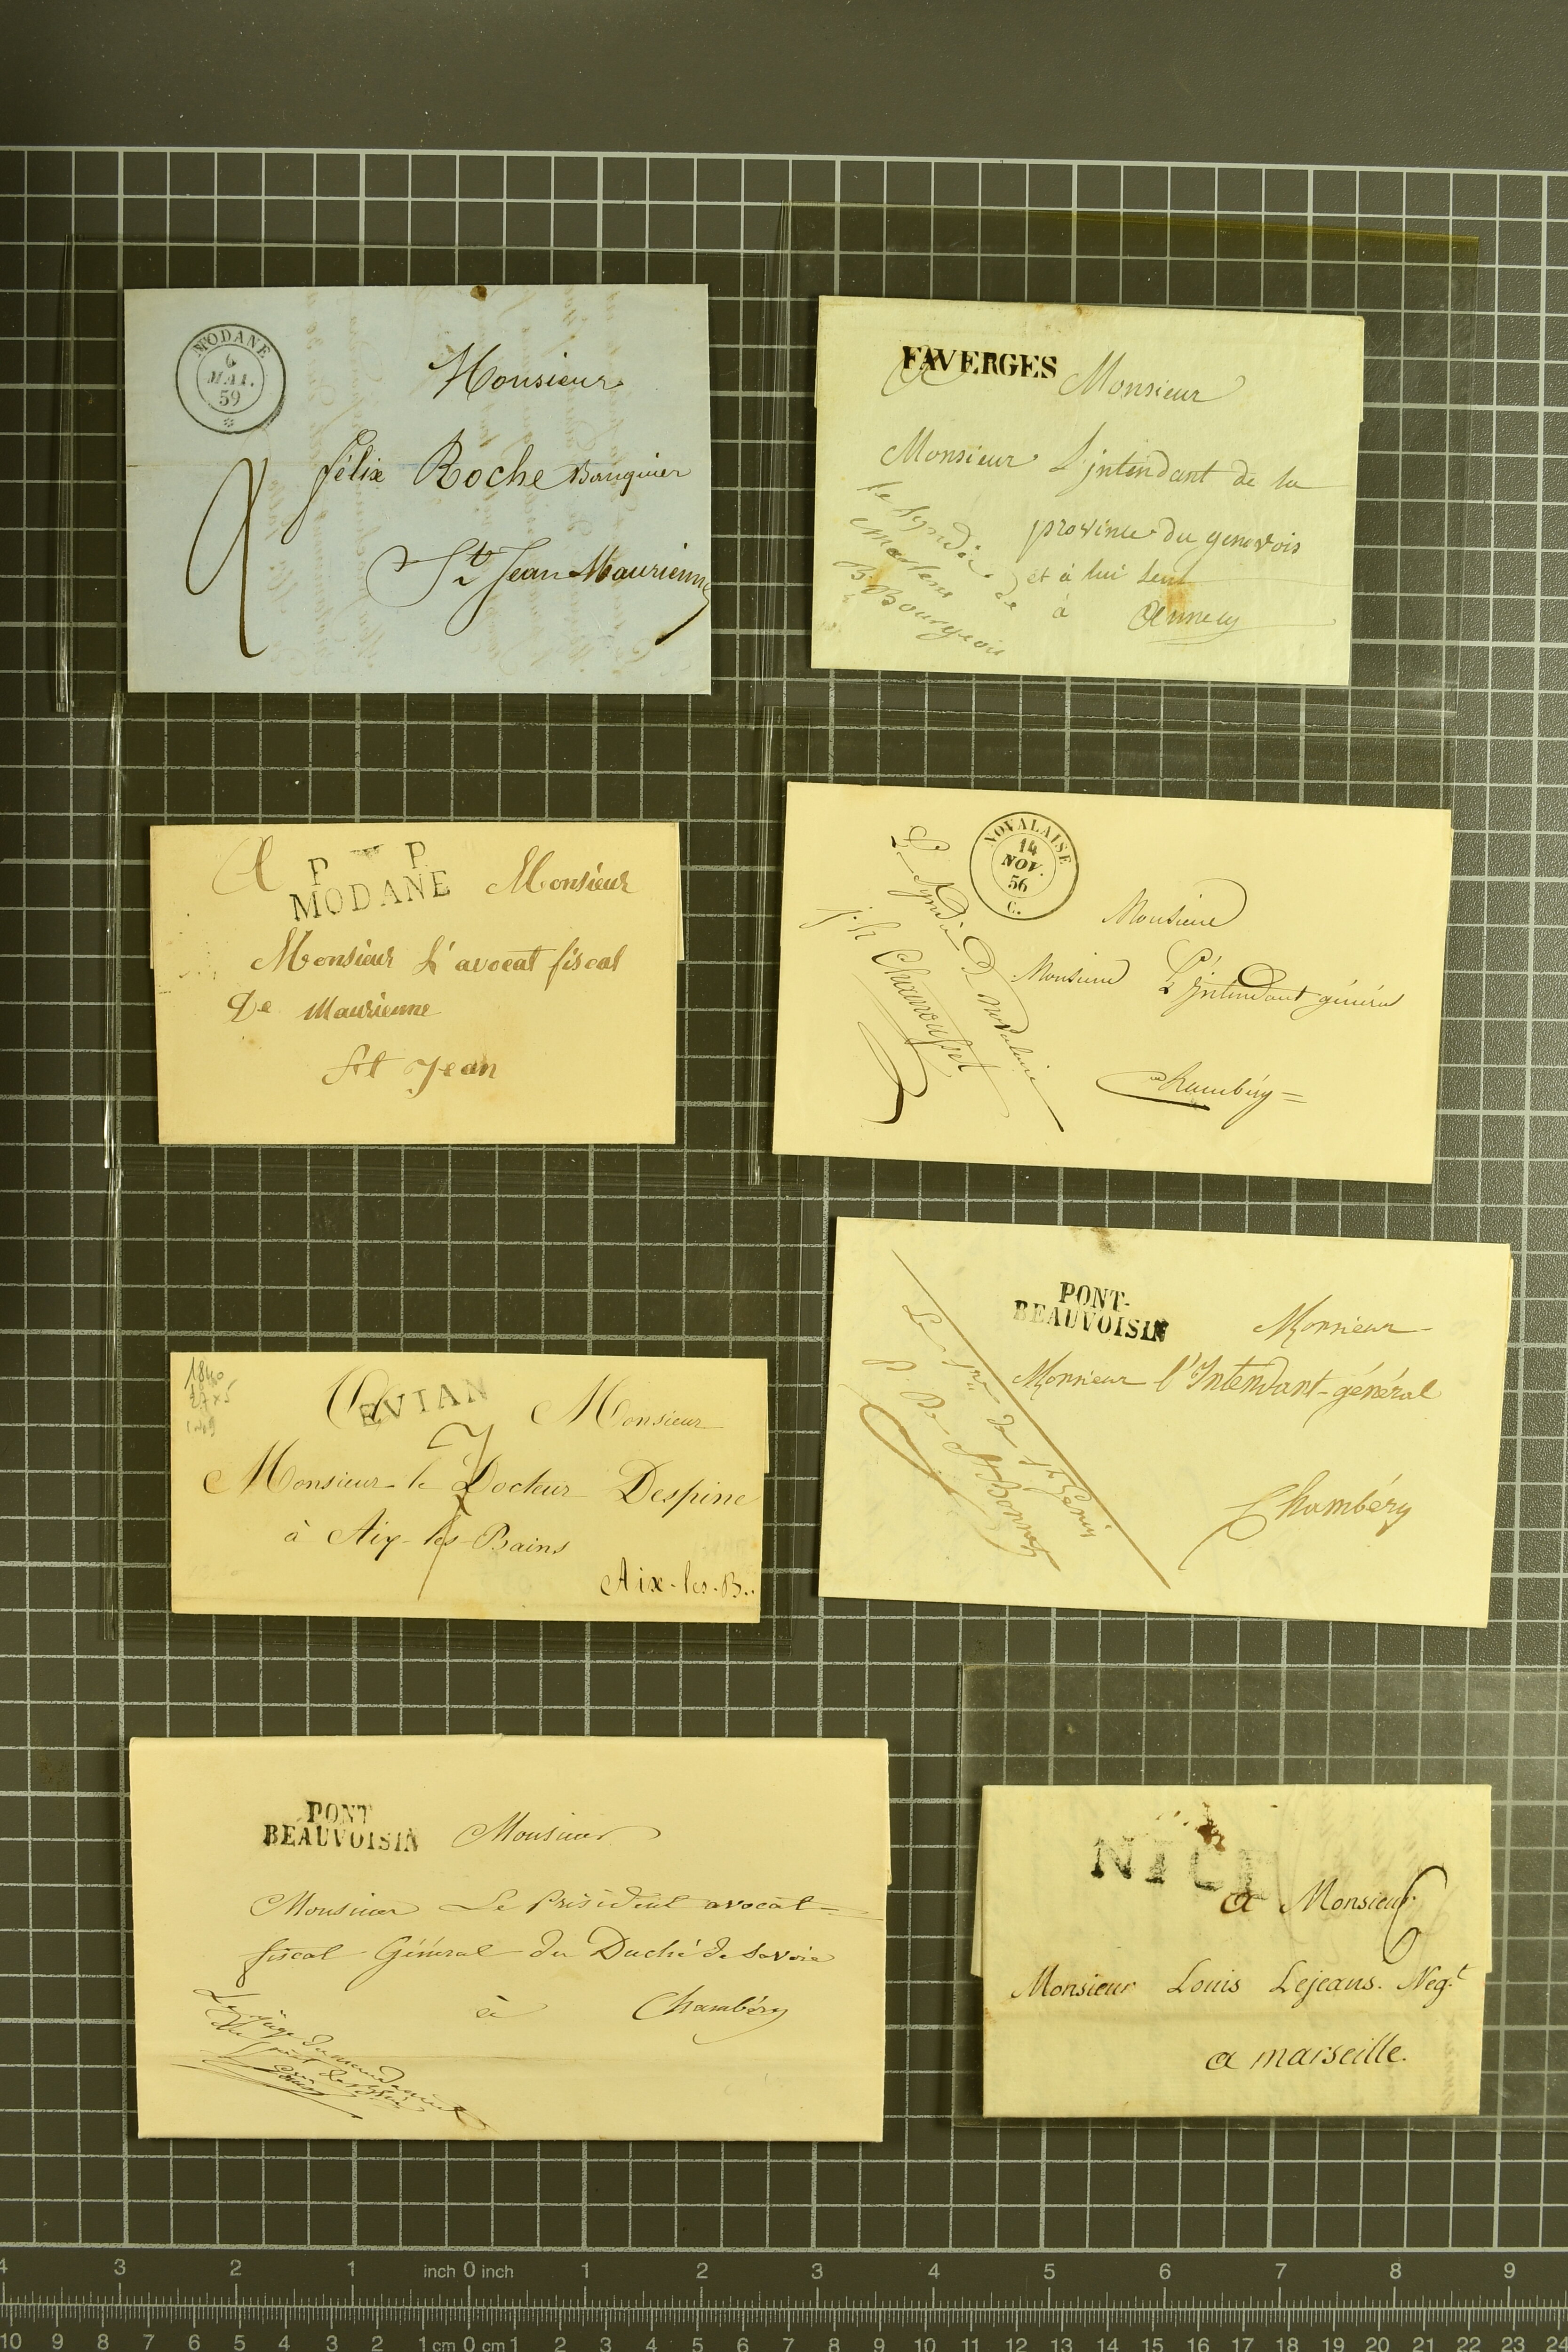 MODANE
6
MAI.
59
Monsieur
félix Roche Banquier
St Jean Maurienne
2
FAVERGES
A Monsieur
Monsieur L'jntendant de la
province du genevois
et à lui seul
à Annecy
le Syndic de
Marlens
B. Bourgeois
P P
MODANE
A Monsieur
Monsieur L'avocat fiscal
De Maurienne
St Jean
NOVALAISE
14
NOV.
56
C.
Monsieur
Monsieur L'Jntendant général
Chambéry =
Le Syndic De Novalaise
1840
EVIAN
A Monsieur
Monsieur le Docteur Despine
à Aix-les-Bains
Aix-les-B..
7
PONT-
BEAUVOISIN
Monsieur
Monsieur l'Intendant-général
Chambéry
PONT
BEAUVOISIN
Monsieur
Monsieur Le Président avocat=
fiscal Général du Duché de Savoie
à Chambéry
Le juge du mandement
NICE
a Monsieur
6
Monsieur Louis Lejeans. Neg.t
a marseille.
4 3 2 1 inch 0 inch 1 2 3 4 5 6 7 8 9
10 9 8 7 6 5 4 3 2 1 cm 0 cm 1 2 3 4 5 6 7 8 9 10 11 12 13 14 15 16 17 18 19 20 21 22 23 24